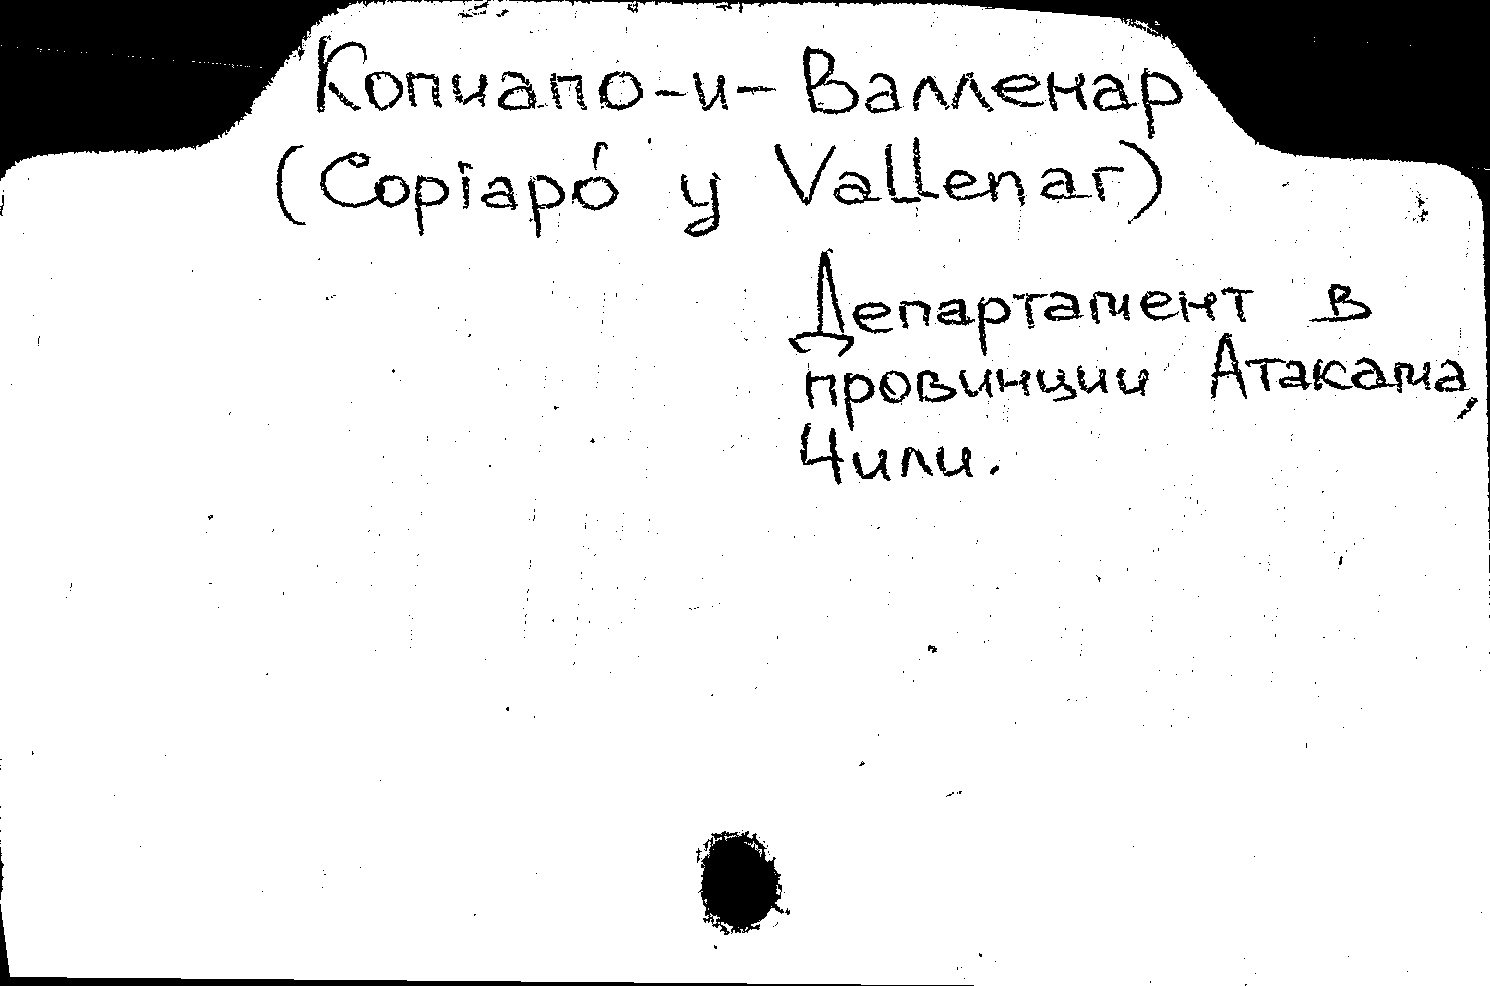 Копиапо-и-Валленар
(Copiapó y Vallenar)
Департамент в
провинции Атакама,
Чили.